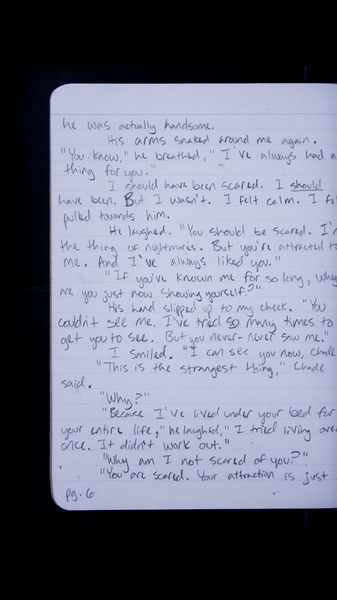 he was actually handsome.
His arms snaked around me again.
"You know," he breathed, "I've always had a
thing for you."
I should have been scared. I should
have been. But I wasn't. I felt calm. I fe
pulled towards him.
He laughed. "You should be scared. I'm
the thing of nightmares. But you're attracted to
me. And I've always liked you."
"If you've known me for so long, why
are you just now showing yourself?"
His hand slipped up to my cheek. "You
couldn't see me. I've tried so many times to
get you to see. But you never- never saw me."
I smiled. "I can see you now, Chade
"This is the strangest thing," Chade
said.
"Why?"
"Because I've lived under your bed for
your entire life," he laughed," I tried living over
once. It didn't work out."
"Why am I not scared of you?"
"You are scared. Your attraction is just
pg. 6